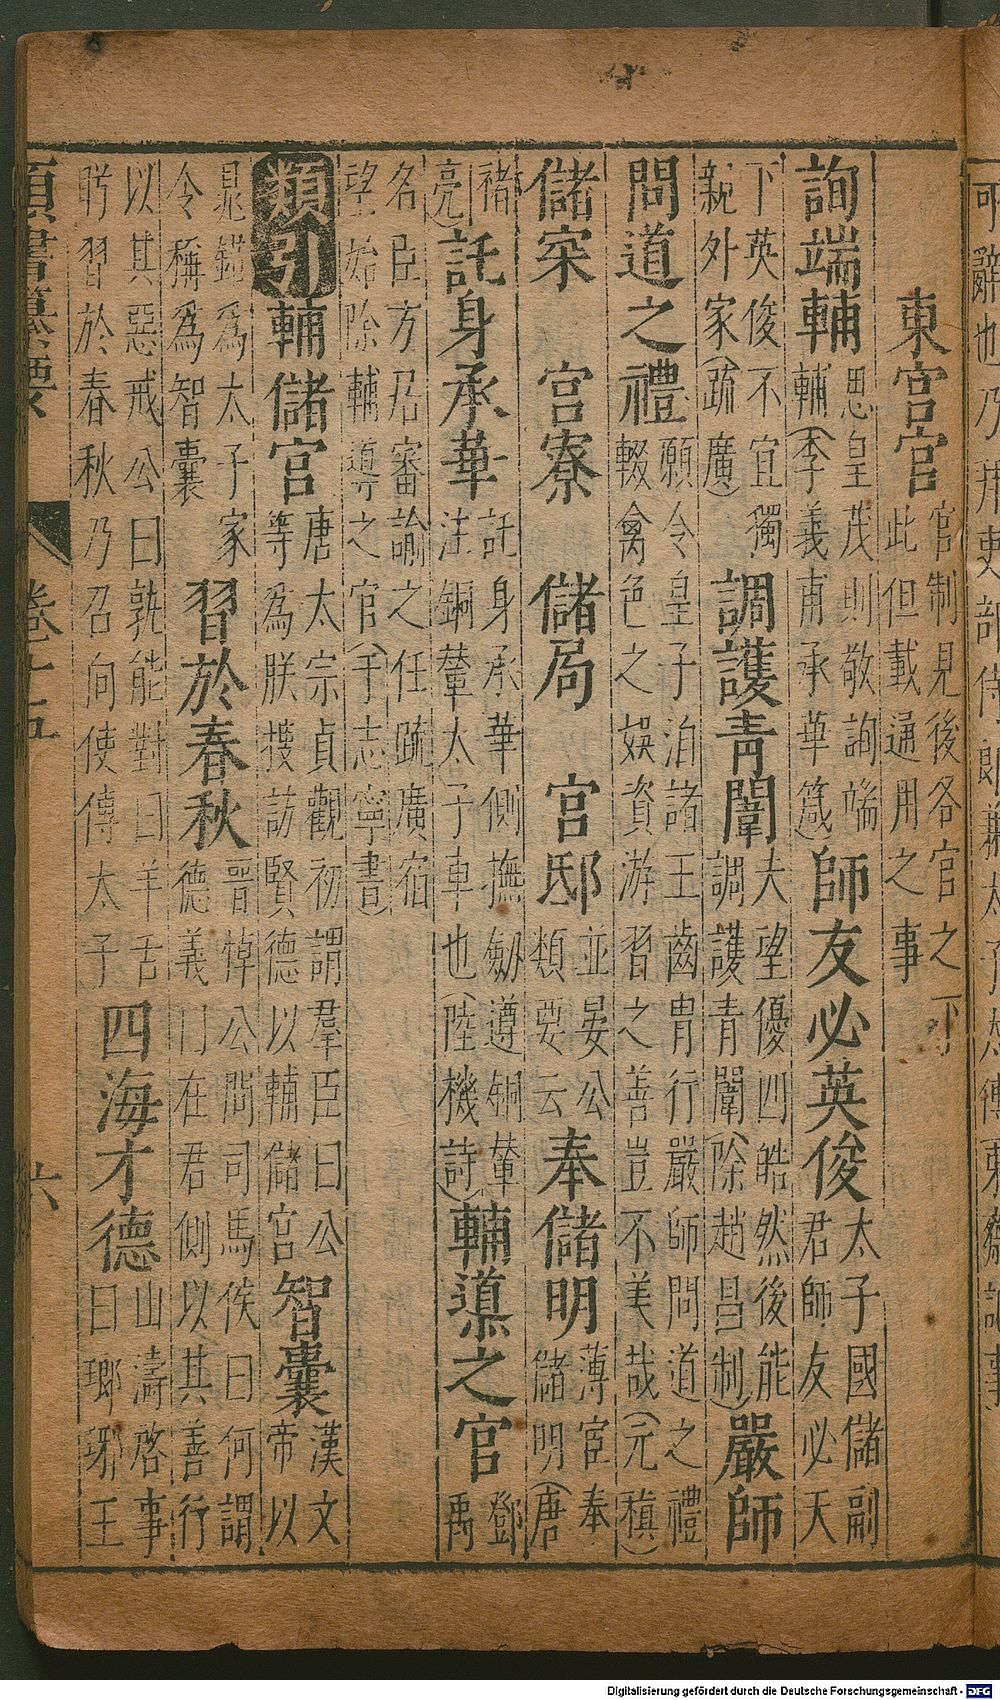 可辭也乃拜吏部侍郎兼太子
東宮官 官制見後各官之下此但載通用之事
詢端輔 思皇茂則敬詢端輔(李義甫承華箴) 師友必英俊 太子國儲副君師友必天
下英俊不宜獨親外家(疏廣) 調護青闈 夫望優四皓然後能調護青闈(除趙昌制) 嚴師
問道之禮 願令皇子洎諸王齒胄行嚴師問道之禮輟禽色之娛資游習之善豈不美哉(元稹)
儲寀 宮寮 儲局 宮邸 並晏公類要云 奉儲明 薄宦奉儲明(唐
褚亮) 託身承華 託身承華側撫劔遵銅輦注銅輦太子車也(陸機詩) 輔導之官 鄧禹
名臣方居審諭之任疏廣宿望始除輔導之官(于志寧書)
類引 輔儲宮 唐太宗貞觀初謂羣臣曰公等為朕搜訪賢德以輔儲宮 智囊 漢文帝以
晁錯為太子家令稱為智囊 習於春秋 晉悼公問司馬侯曰何謂德義曰在君側以其善行
以其惡戒公曰孰能對曰羊舌肸習於春秋乃召向使傅太子 四海才德 山濤啓事曰瑯琊王
類書纂要 卷十五 六
Digitalisierung gefördert durch die Deutsche Forschungsgemeinschaft - DFG